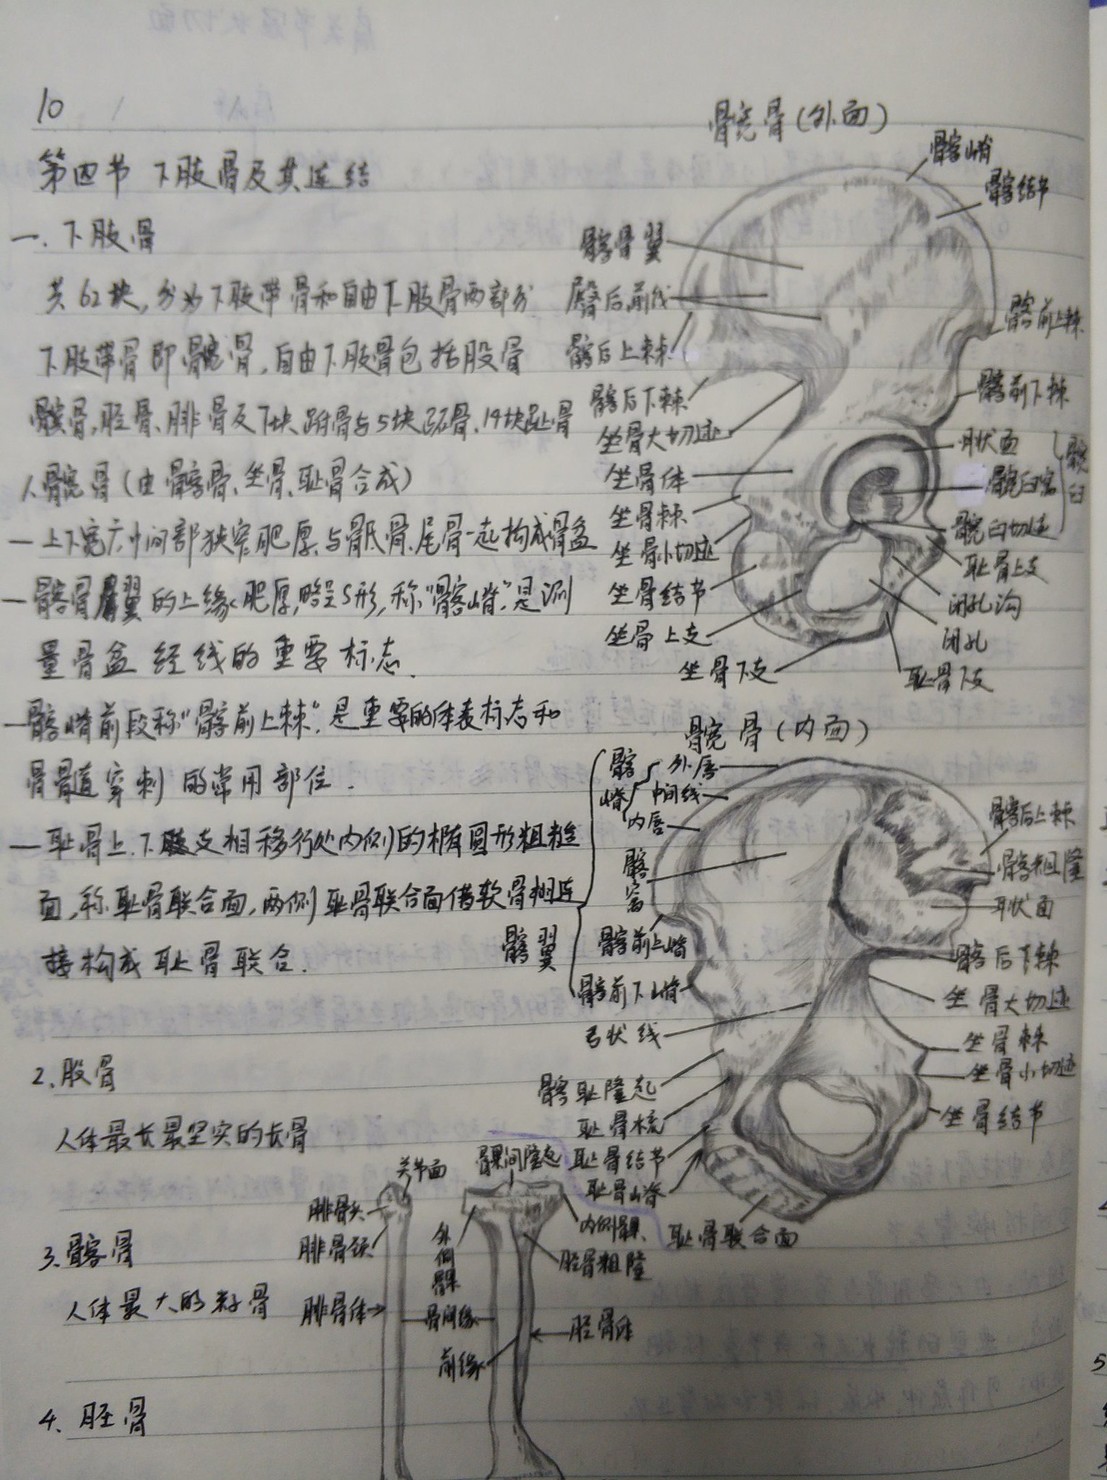 10
第四节 下肢骨及其连结
一. 下肢骨
共62块,分为下肢带骨和自由下肢骨两部分
下肢带骨即髋骨,自由下肢骨包括股骨
髌骨,胫骨、腓骨及7块跗骨与5块跖骨,14块趾骨
1.髋骨(由髂骨、坐骨、耻骨合成)
— 上下宽广中间部狭窄肥厚,与骶骨,尾骨一起构成骨盆
— 髂骨翼的上缘肥厚,略呈S形,称"髂嵴",是测
量骨盆径线的重要标志.
— 髂嵴前段称"髂前上棘",是重要的体表标志和
骨髓穿刺的常用部位.
— 耻骨上、下支相移行处内侧的椭圆形粗糙
面,称耻骨联合面,两侧耻骨联合面借软骨相连
接构成耻骨联合.
2.股骨
人体最长最坚实的长骨
3.髂骨
人体最大的籽骨
4、胫骨
髋骨(外面)
髂嵴
髂结节
髂骨翼
臀后前线
髂后上棘
髂前上棘
髂后下棘
髂前下棘
坐骨大切迹
月状面
髋臼
坐骨体
髋臼窝
坐骨棘
髋臼切迹
坐骨小切迹
耻骨上支
坐骨结节
闭孔沟
坐骨上支
闭孔
坐骨下支
耻骨下支
髋骨(内面)
髂嵴
外唇
中间线
内唇
髂窝
髂翼
髂前上嵴
髂前下嵴
弓状线
髂耻隆起
耻骨梳
耻骨结节
耻骨嵴
耻骨联合面
髂后上棘
髂粗隆
耳状面
髂后下棘
坐骨大切迹
坐骨棘
坐骨小切迹
坐骨结节
关节面
髁间隆起
腓骨头
腓骨颈
外侧髁
内侧髁
胫骨粗隆
腓骨体
骨间缘
胫骨体
前缘
5